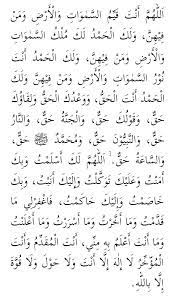 اَللَّهُمَّ أَنْتَ قَيِّمُ السَّمَوَاتِ وَالْأَرْضِ وَمَنْ
فِيْهِنَّ، وَلَكَ الْحَمْدُ لَكَ مُلْكُ السَّمَوَاتِ
وَالْأَرْضِ وَمَنْ فِيْهِنَّ، وَلَكَ الْحَمْدُ أَنْتَ
نُوْرُ السَّمَوَاتِ وَالْأَرْضِ وَمَنْ فِيْهِنَّ وَلَكَ
الْحَمْدُ أَنْتَ الْحَقُّ، وَوَعْدُكَ الْحَقُّ وَلِقَاؤُكَ
حَقٌّ، وَقَوْلُكَ حَقٌّ، وَالْجَنَّةُ حَقٌّ، وَالنَّارُ
حَقٌّ، وَالنَّبِيُّوْنَ حَقٌّ، وَمُحَمَّدٌ ﷺ حَقٌّ،
وَالسَّاعَةُ حَقٌّ، اَللَّهُمَّ لَكَ أَسْلَمْتُ وَبِكَ
آمَنْتُ وَعَلَيْكَ تَوَكَّلْتُ وَإِلَيْكَ أَنَبْتُ، وَبِكَ
خَاصَمْتُ وَإِلَيْكَ حَاكَمْتُ، فَاغْفِرْلِي مَا
قَدَّمْتُ وَمَا أَخَّرْتُ وَمَا أَسْرَرْتُ وَمَا أَعْلَنْتُ
وَمَا أَنْتَ أَعْلَمُ بِهِ مِنِّي، أَنْتَ الْمُقَدِّمُ وَأَنْتَ
الْمُؤَخِّرُ لَا إِلَهَ إِلَّا أَنْتَ وَلَا حَوْلَ وَلَا قُوَّةَ
إِلَّا بِاللهِ.